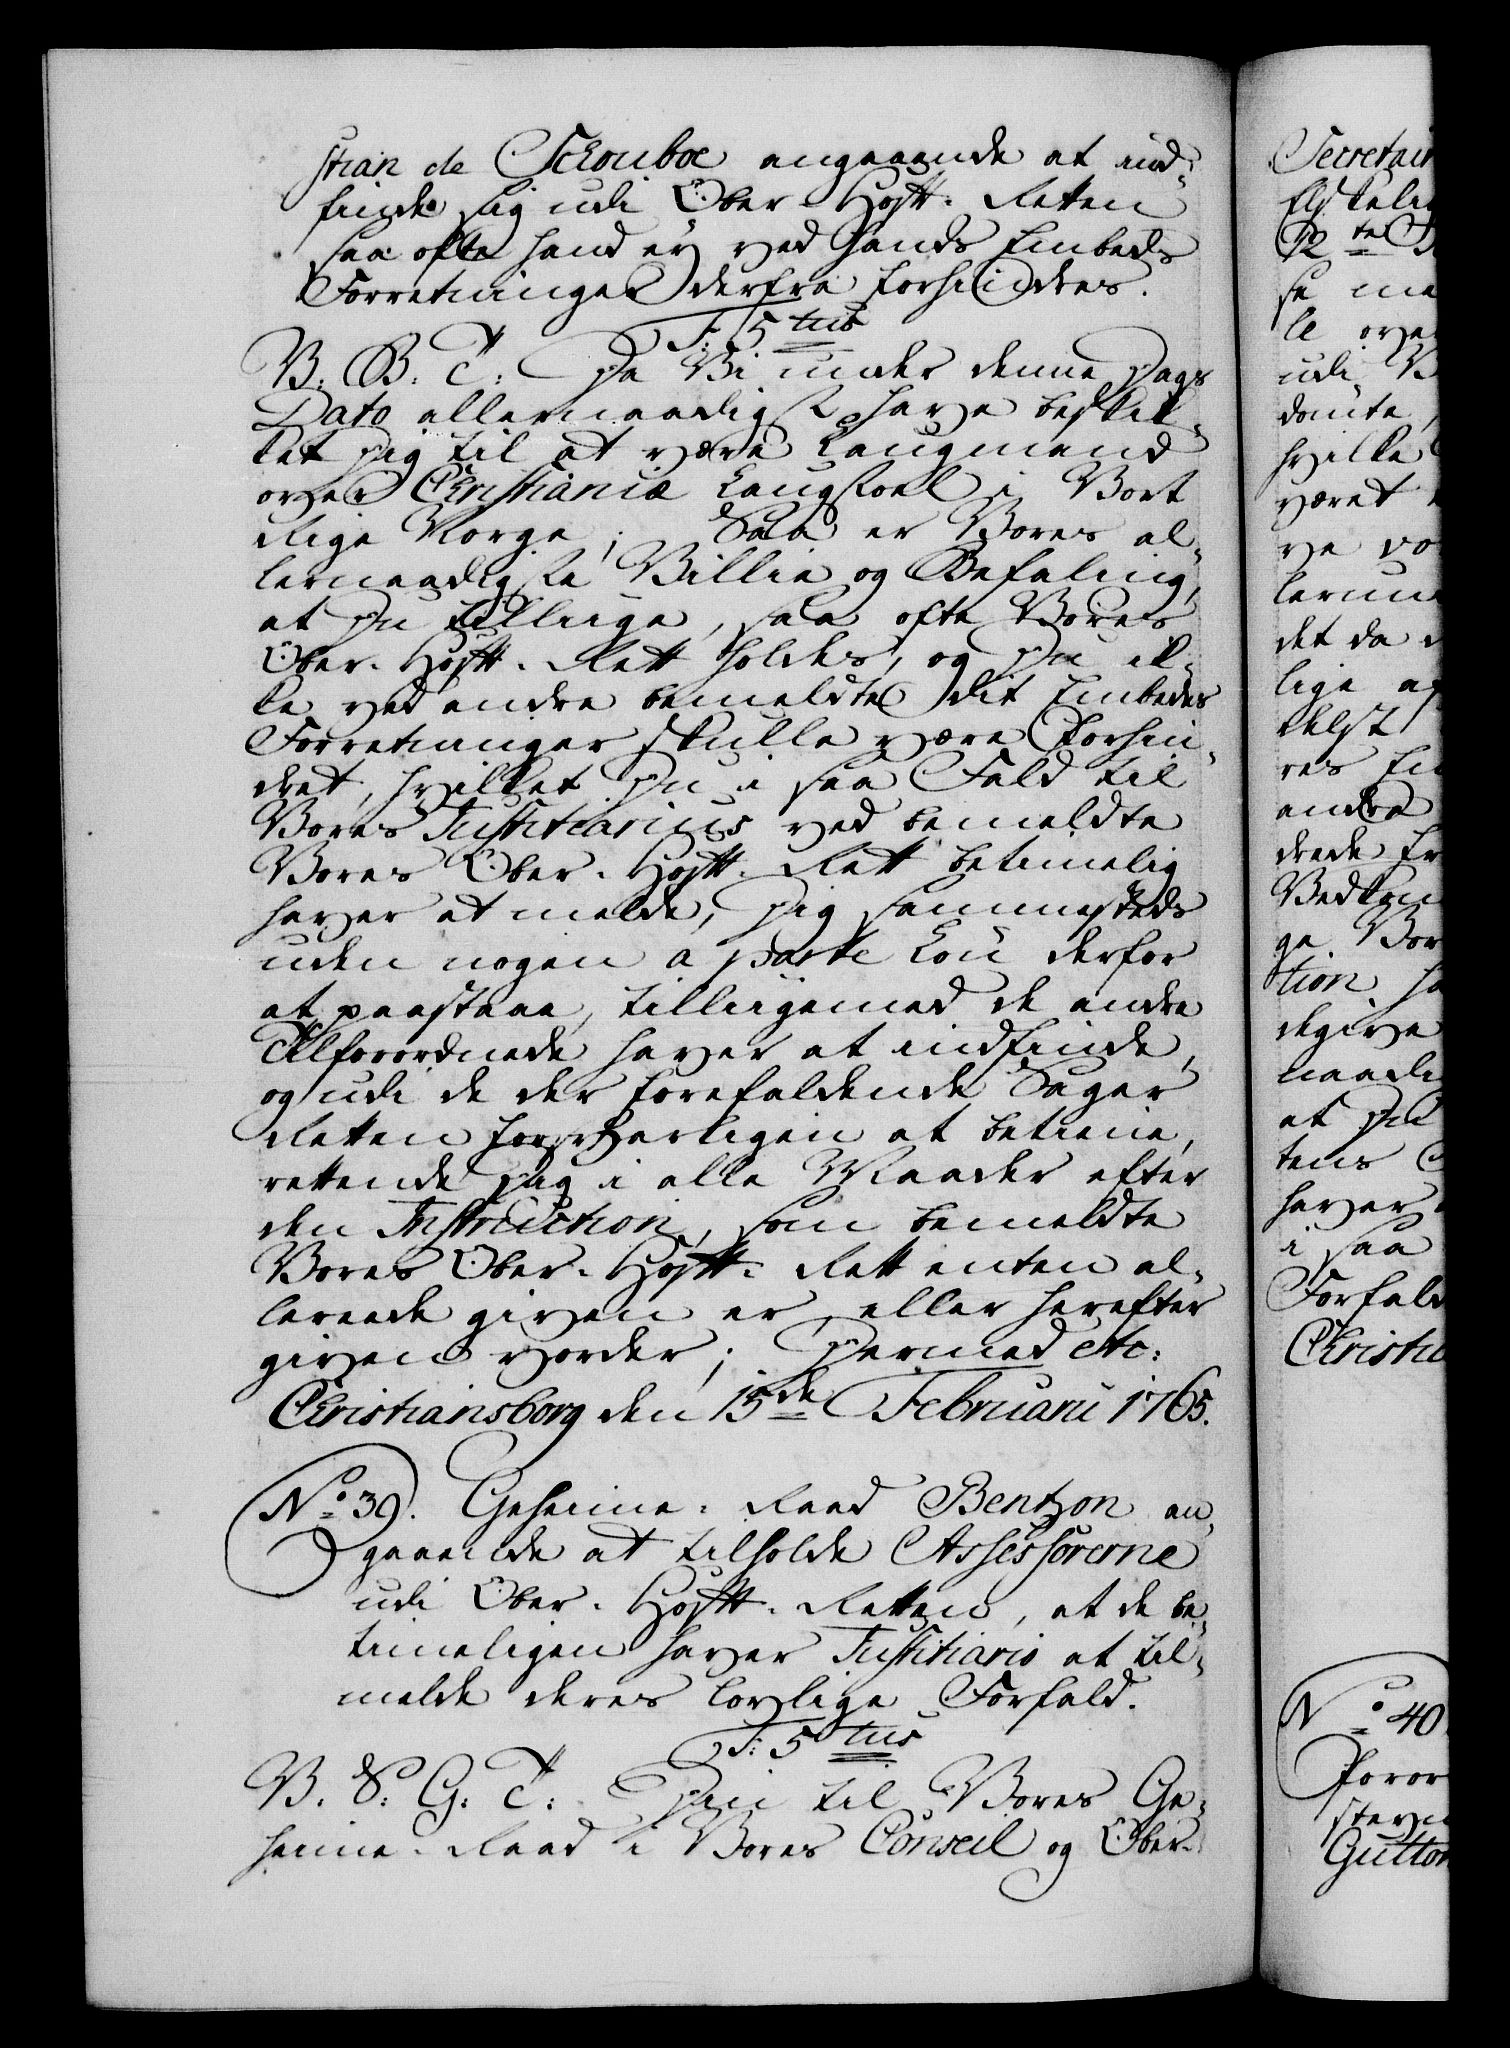 stian de Schouboe angaaende at ind-
finde sig udi Ober-Hoff-Retten
saa ofte hand ey ved hands Embeds
Forretninger derfra forhindres.
F: 5tus
V. B. T: Da Vi under denne Dags
Dato allernaadigst have beskik-
ket dig til at være Laugmand
over Christianiæ Laugstoel i Vort
Rige Norge; Saa er Vores al-
lernaadigste Villie og Befaling,
at du tillige, saa ofte Vores
Ober-Hoff-Rett holdes, og du ik-
ke ved andre bemeldte dit Embedes
Forretninger skulle være forhin-
dret, hvilket du i saa Fald til
Vores Justitiarius ved bemeldte
Vores Ober-Hoff-Rett betimelig
haver at melde, dig sammesteds
uden nogen a parte Løn derfor
at paastaae, tilligemed de andre
Tilforordnede haver at indfinde,
og udi de der forefaldende Sager
Retten forsvarligen at betiene,
rettende dig i alle Maader efter
den Instruction, som bemeldte
Vores Ober-Hoff-Rett enten al-
lereede given er, eller herefter
given vorder; Dermed etc:
Christiansborg den 15de Februarii 1765.
No 39. Geheime-Raad Bentzon an-
gaaende at tilholde Assessorerne
udi Ober-Hoff-Retten, at de be-
timeligen haver Justitiario at til-
melde deres lovlige Forfald.
F: 5tus
V. S. G. T: Din til Vores Ge-
heime-Raad i Vores Conseil og Ober-
Secretair
Elskelig
se me
le over
udi V
domte,
hvilke
været
ve vo
lerun
det da
lige a
helst
res Em
andre
drede fr
Vedkom
ge Vor
tion, ha
degive
naadi
at du
tens
haver
i saa
Forfald
Christia
No 40
Foror
stevn
Gutton